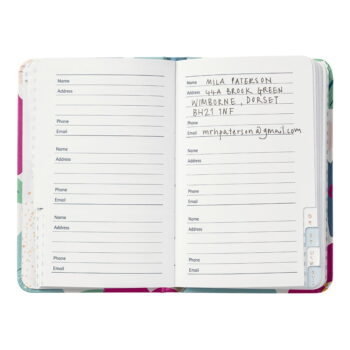 Name
Address
Phone
Email
Name
Address
Phone
Email
Name
Address
Phone
Email
Name MILA PATERSON
Address 44A BROOK GREEN
WIMBORNE, DORSET
BH21 1NF
Phone
Email mrhpaterson@gmail.com
Name
Address
Phone
Email
Name
Address
Phone
Email